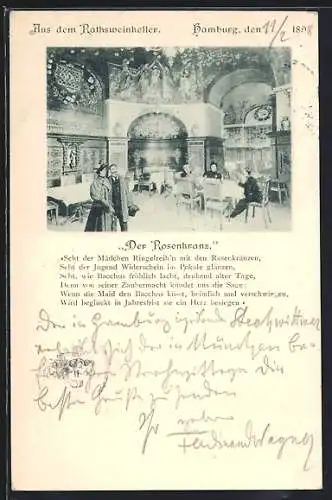 Aus dem Rathsweinkeller. Hamburg, den 11/2 1898
„Der Rosenkranz.“
»Seht der Mädchen Ringelreih'n mit den Rosenkränzen,
Seht der Jugend Widerschein im Pokale glänzen,
Seht, wie Bacchus fröhlich lacht, denkend alter Tage,
Denn von seiner Zaubermacht kündet uns die Sage:
Wenn die Maid den Bacchus küsst, heimlich und verschwiegen,
Wird beglückt in Jahresfrist sie ein Herz besiegen.«
Der in Hamburg
sich der in München
die
beste Grüße zu senden
Ihr
Ferdinand Wagner